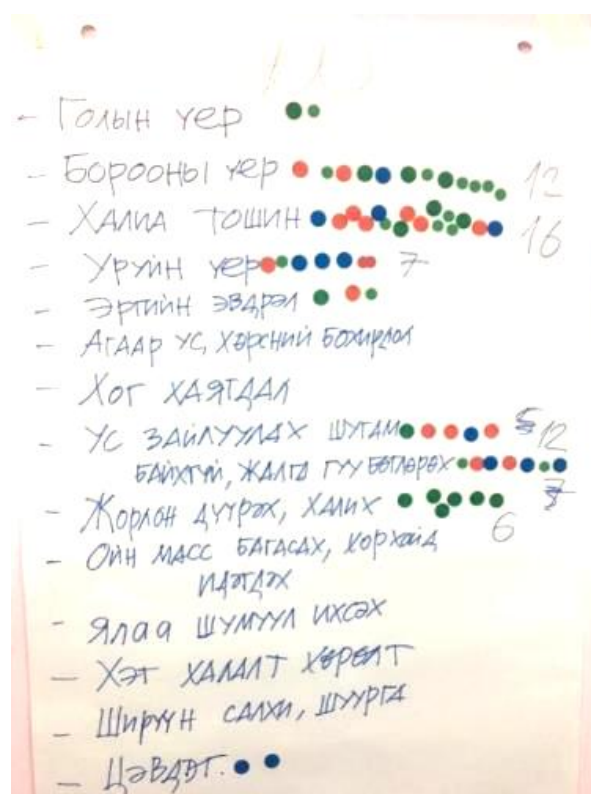 - Голын үер
- Борооны үер 12
- Халиа тошин 16
- Уруйн үер 7
- Эргийн эвдрэл
- Агаар ус, хөрсний бохирдол
- Хог хаягдал
- Ус зайлуулах шугам 12
байхгүй, жалга гуу бөглөрөх 7
- Жорлон дүүрэх, халих 6
- Ойн масс багасах, хорхойд
идэгдэх
- Ялаа шумуул ихсэх
- Хэт халалт хөрөлт
- Ширүүн салхи, шуурга
- Цэвдэг.